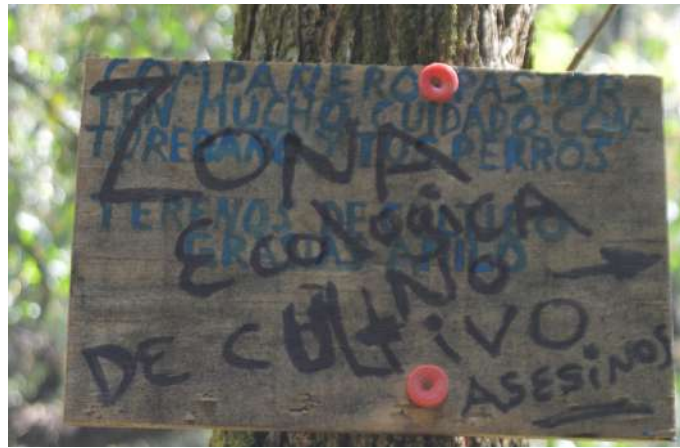 COMPAÑERO PASTOR
TEN MUCHO CUIDADO CON
TU REBAÑO Y TUS PERROS
TERENOS DE CULTIVO
GRACIAS
ZONA
EcoloGiCA
NO
DE CULtiVO
ASESiNOS